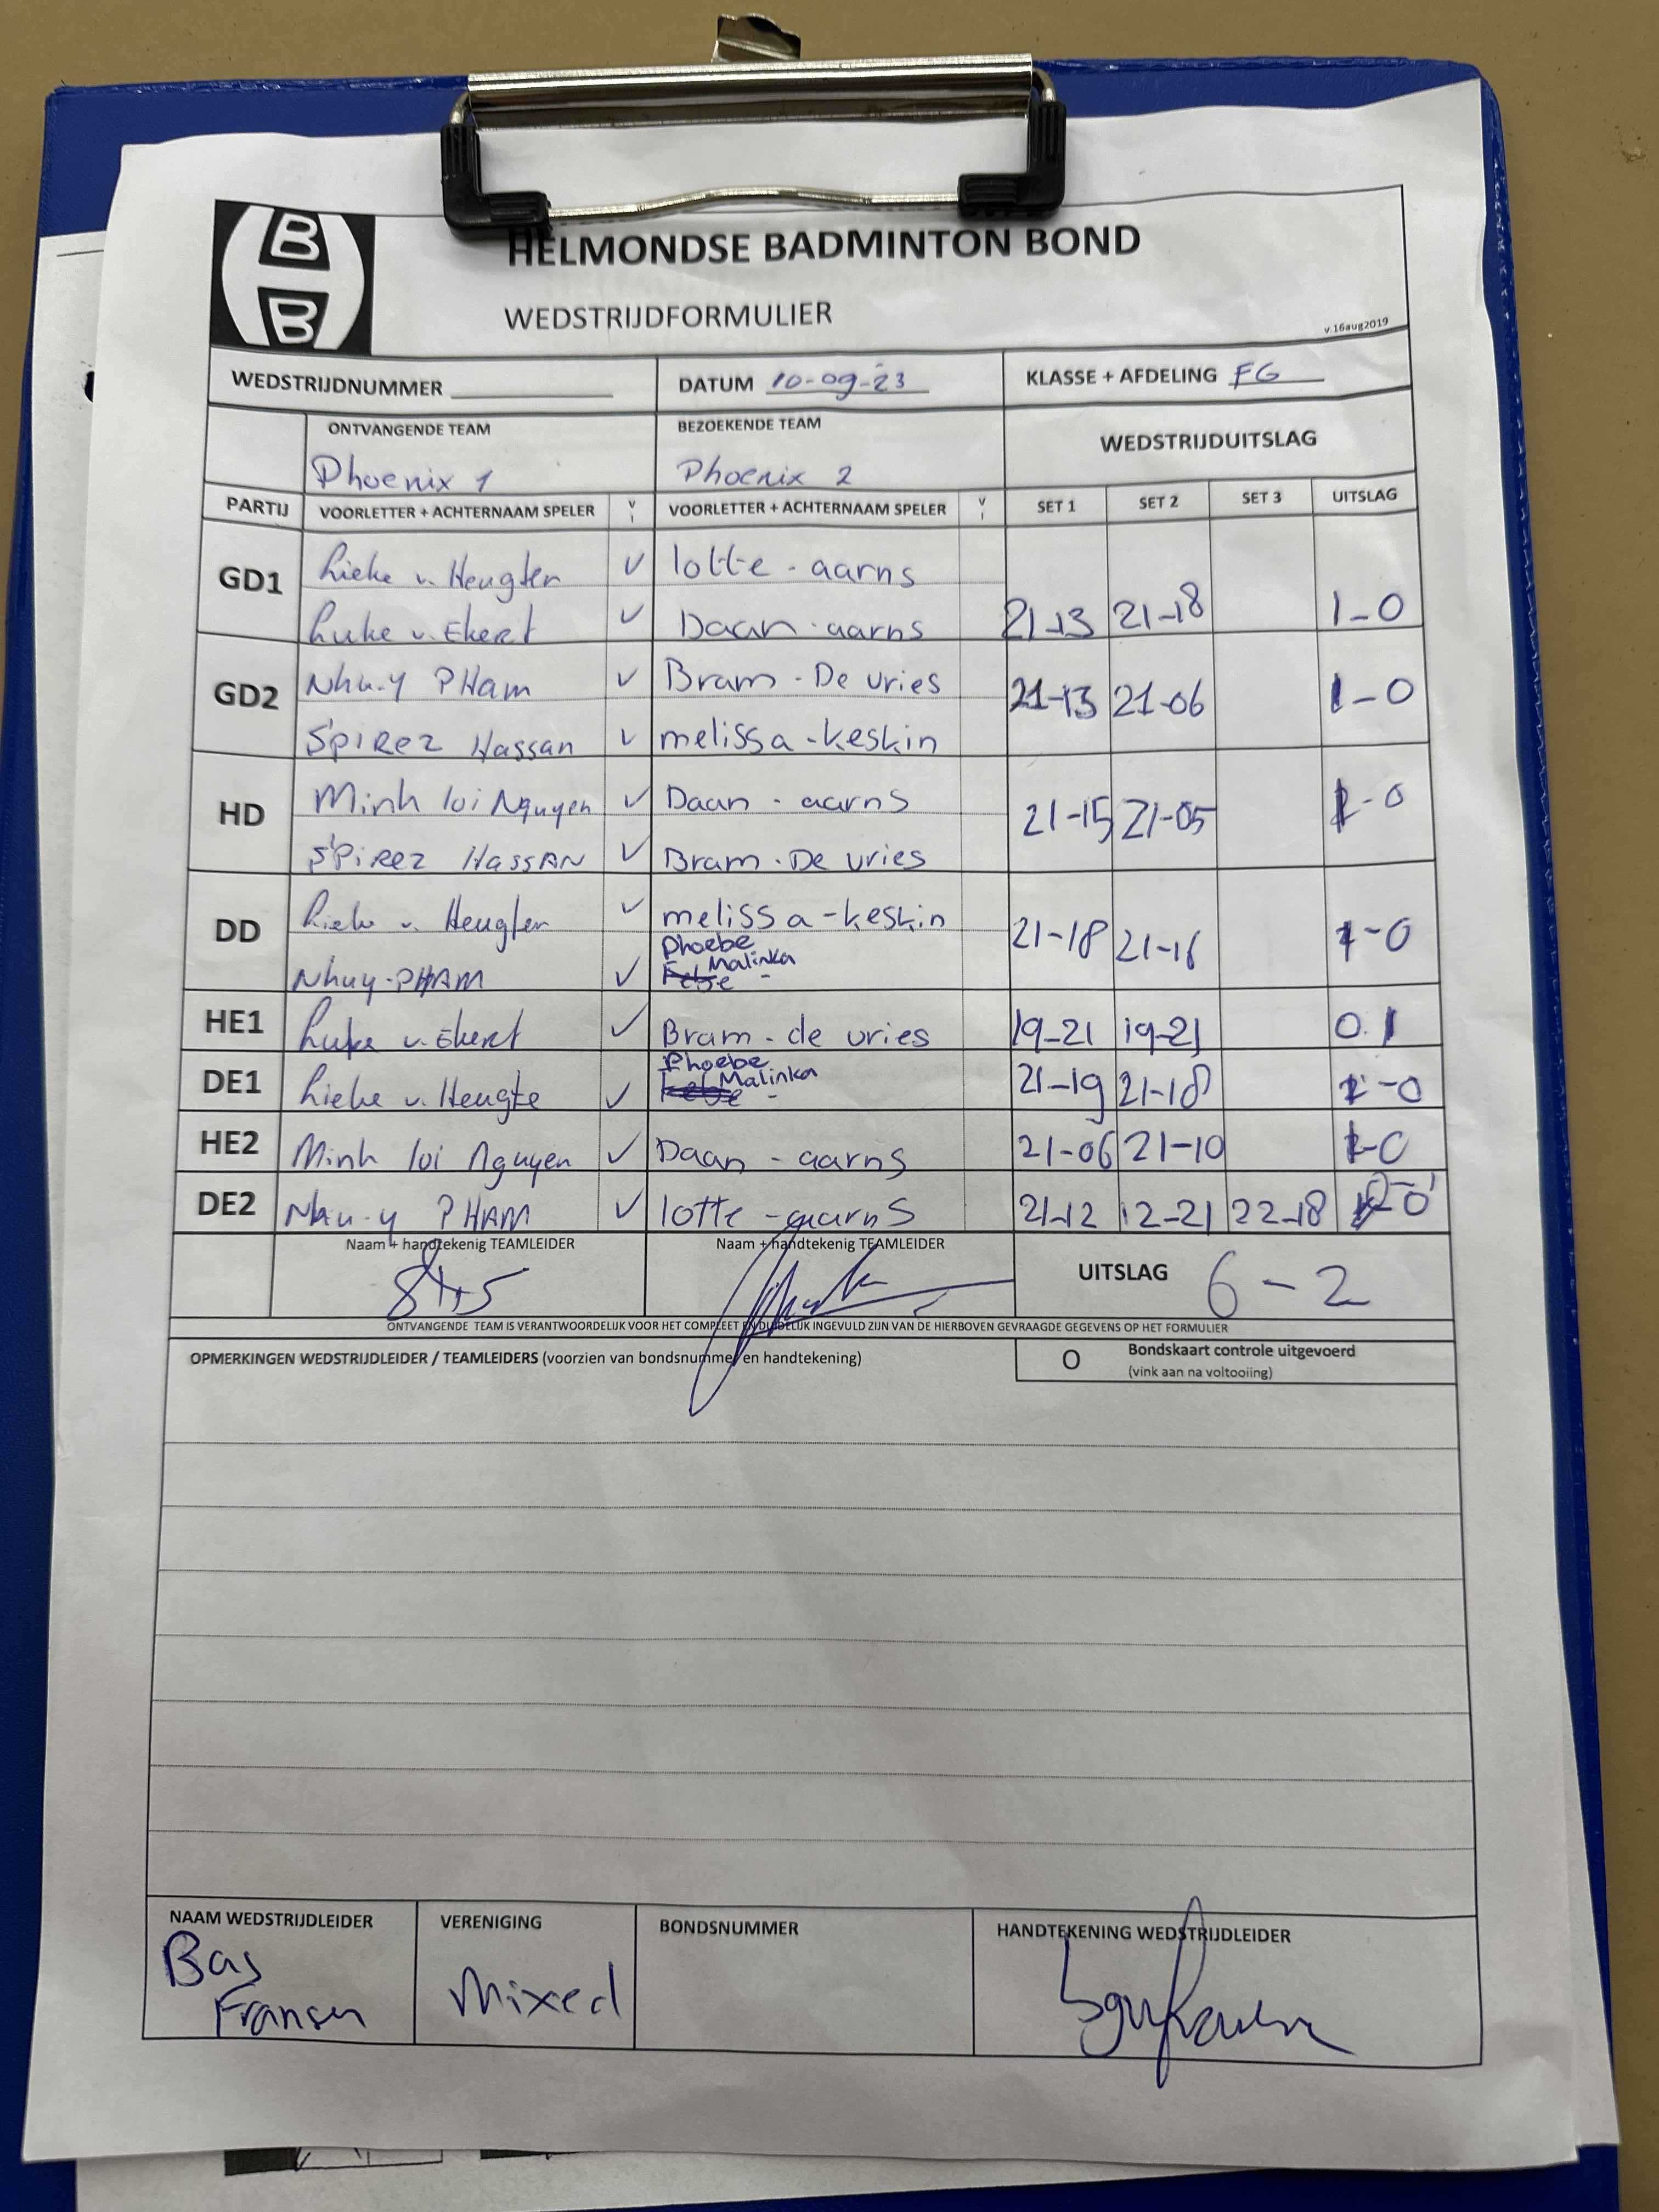 B
B
HELMONDSE BADMINTON BOND
WEDSTRIJDFORMULIER
v.16aug2019
WEDSTRIJDNUMMER DATUM 10-09-23 KLASSE + AFDELING FG
ONTVANGENDE TEAM BEZOEKENDE TEAM WEDSTRIJDUITSLAG
Phoenix 1 Phoenix 2
PARTIJ VOORLETTER + ACHTERNAAM SPELER V I VOORLETTER + ACHTERNAAM SPELER V I SET 1 SET 2 SET 3 UITSLAG
GD1 Lieke v. Heugten V lotte - aarns
Luke v. Ekert V Daan - aarns 21-13 21-18 1-0
GD2 Nhu-y PHam V Bram - De vries 21-13 21-06 1-0
SPIREZ Hassan V melissa - keskin
HD Minh loi Nguyen V Daan - aarns 21-15 21-05 1-0
SPIREZ HASSAN V Bram - De vries
DD Lieke v. Heugten V melissa - keskin 21-18 21-16 1-0
Nhuy-PHAM V Phoebe Malinka -
HE1 Luke v. Ekert V Bram - de vries 19-21 19-21 0.1
DE1 Lieke v. Heugte V Phoebe Malinka - 21-19 21-18 1-0
HE2 Minh loi Nguyen V Daan - aarns 21-06 21-10 1-0
DE2 Nhu-y PHAM V lotte - aarns 21-12 12-21 22-18
Naam + handtekenig TEAMLEIDER Naam + handtekenig TEAMLEIDER
UITSLAG 6-2
ONTVANGENDE TEAM IS VERANTWOORDELIJK VOOR HET COMPLEET EN DUIDELIJK INGEVULD ZIJN VAN DE HIERBOVEN GEVRAAGDE GEGEVENS OP HET FORMULIER
OPMERKINGEN WEDSTRIJDLEIDER / TEAMLEIDERS (voorzien van bondsnummer en handtekening) O Bondskaart controle uitgevoerd
(vink aan na voltooiing)
NAAM WEDSTRIJDLEIDER VERENIGING BONDSNUMMER HANDTEKENING WEDSTRIJDLEIDER
Bas
Fransen Mixed